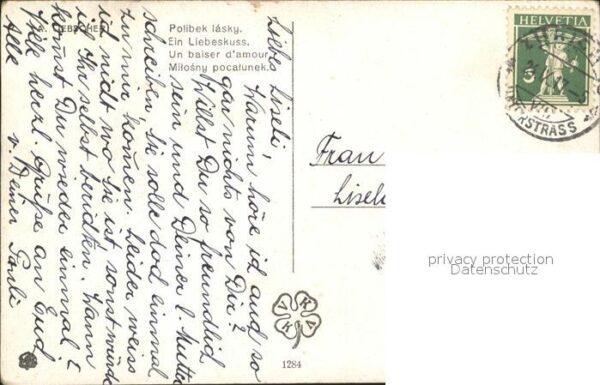 K. LIEBSCHER
Polibek lásky.
Ein Liebeskuss.
Un baiser d'amour.
Milośny pocałunek.
HELVETIA
5
OBERSTRASS
Liebes Liseli,
Warum höre ich auch so
gar nichts von Dir?
Willst Du so freundlich
sein und Deiner l. Mutter
schreiben, Sie solle doch einmal
zu mir kommen. Leider weiss
ich nicht wo Sie ist, sonst würde
ich Ihr selbst berichten. Wann
kommst Du wieder einmal?
Viele herzl. Grüße an Euch
Alle v. Deiner Pauli
Frau
privacy protection
Datenschutz
V K K A
1284